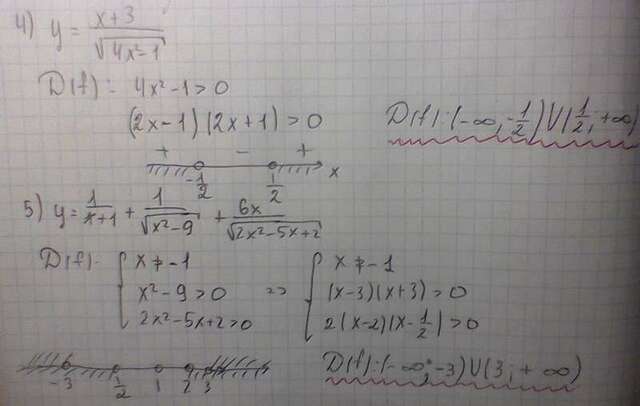 4) y = x+3 / √(4x²-1)
D(f): 4x²-1>0
(2x-1)(2x+1)>0
D(f):(-∞,-1/2)U(1/2;+∞)
+ - +
-1/2 1/2 x
5) y = 1/(x+1) + 1/√(x²-9) + 6x/√(2x²-5x+2)
D(f): { x≠-1 => { x≠-1
x²-9>0 (x-3)(x+3)>0
2x²-5x+2>0 2(x-2)(x-1/2)>0
-3 1/2 1 2 3
D(f):(-∞;-3)U(3;+∞)